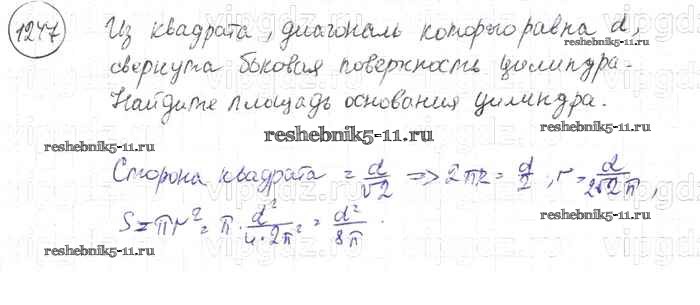 1247 Из квадрата, диагональ которого равна d,
свернута боковая поверхность цилиндра.
Найдите площадь основания цилиндра.
reshebnik5-11.ru
reshebnik5-11.ru
reshebnik5-11.ru
Сторона квадрата = d/√2 => 2πr = d/2, r = d/2√2π,
S = πr² = π · d²/4·2π² = d²/8π.
reshebnik5-11.ru
reshebnik5-11.ru